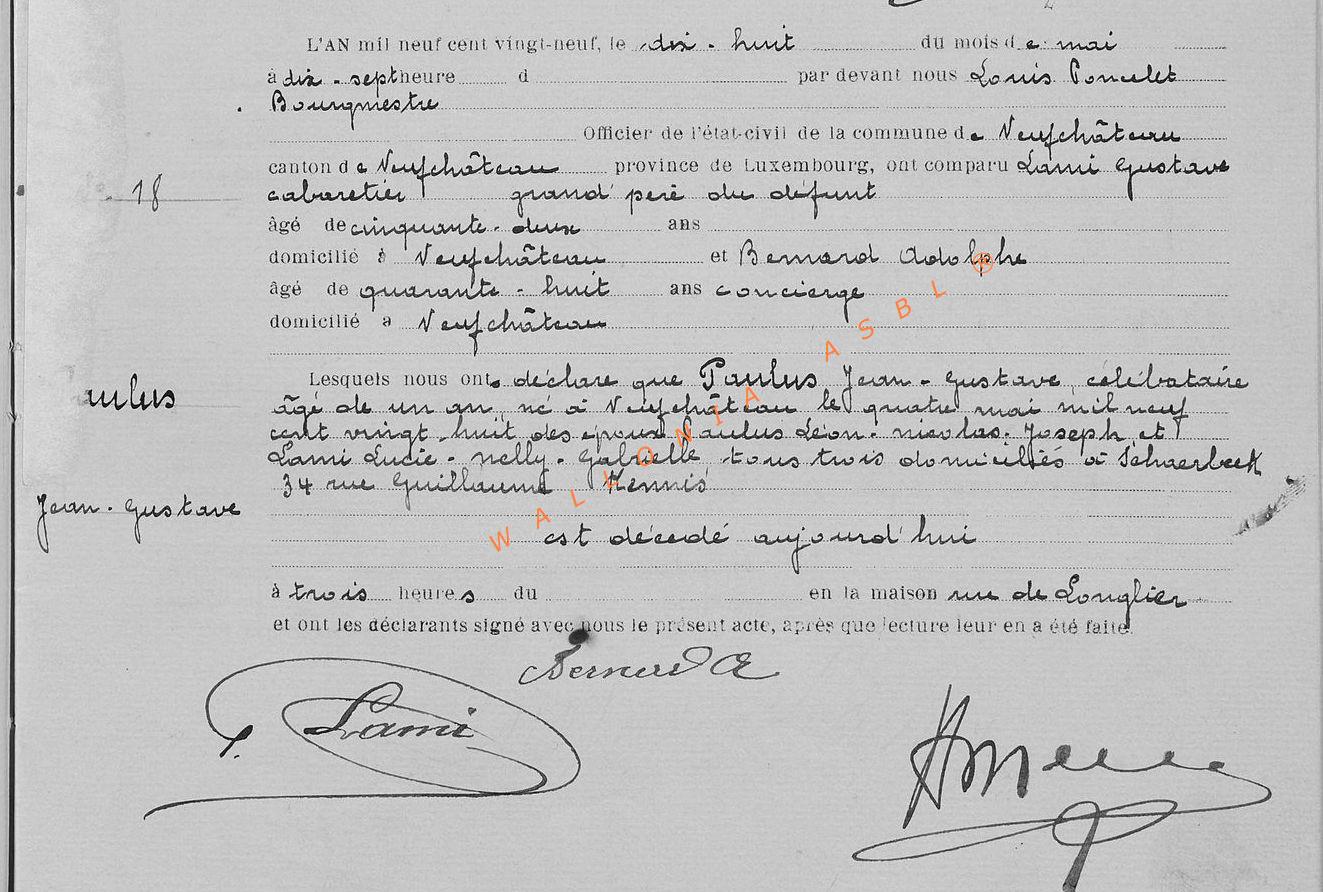 L'AN mil neuf cent vingt-neuf, le dix - huit du mois de mai
à dix - sept heure d par devant nous Louis Poncelet
Bourgmestre
Officier de l'état-civil de la commune de Neufchâteau
canton de Neufchâteau province de Luxembourg, ont comparu Lami Gustave
18
cabaretier grand père du défunt
âgé de cinquante - deux ans
domicilié à Neufchâteau et Bernard Adolphe
âgé de quarante - huit ans concierge
domicilié a Neufchâteau
Lesquels nous ont déclaré que Paulus Jean - Gustave, célibataire
aulus
âgé de un an, né à Neufchâteau le quatre mai mil neuf
cent vingt huit des époux Paulus Léon - nicolas - Joseph et
Lami Lucie - nelly - Gabrielle, tous trois domiciliés à Schaerbeek
34 rue Guillaume Kennis
Jean - Gustave
est décédé aujourd'hui
à trois heures du en la maison rue de Longlier
et ont les déclarants signé avec nous le présent acte, après que lecture leur en a été faite.
Bernard A
Lami
WALLONIA ASBL ®